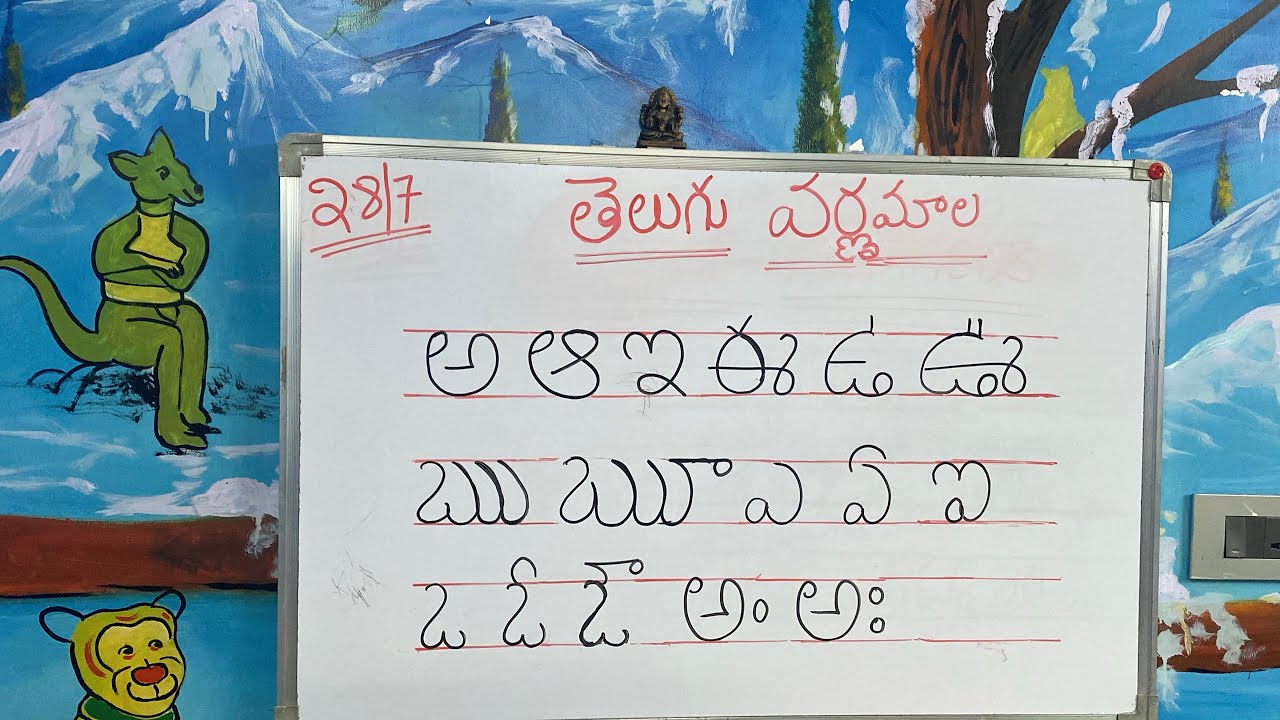 28/7 తెలుగు వర్ణమాల
అ ఆ ఇ ఈ ఉ ఊ
ఋ ౠ ఎ ఏ ఐ
ఒ ఓ ఔ అం అః